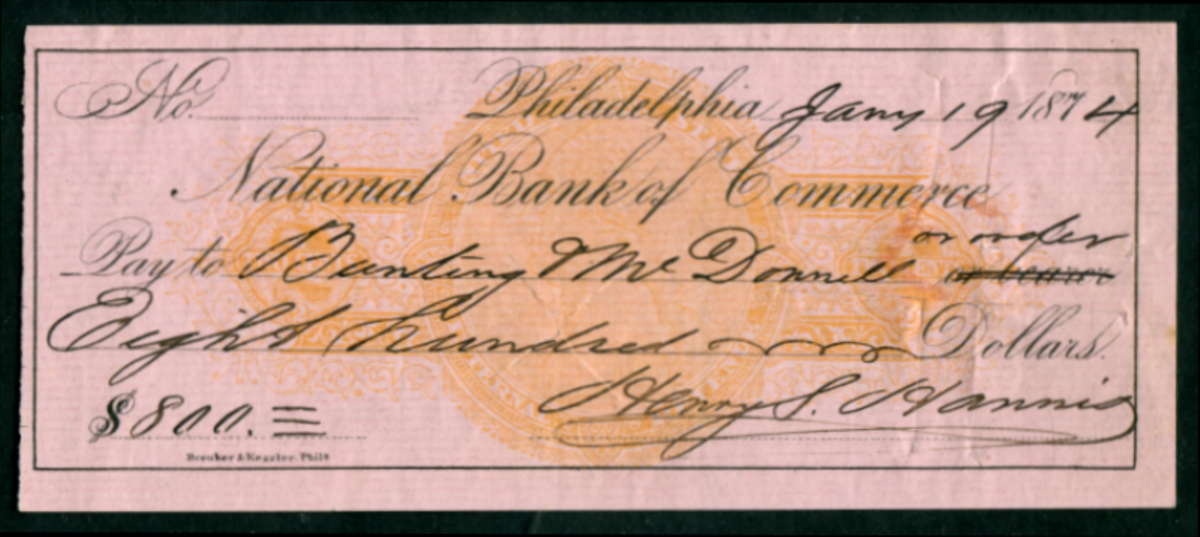 No. Philadelphia Jany 19 1874
National Bank of Commerce
or order
Pay to Bunting & Mc Donnell or bearer
Eight hundred Dollars.
$800. Henry S. Hannis
Breuker & Kessler. Phila